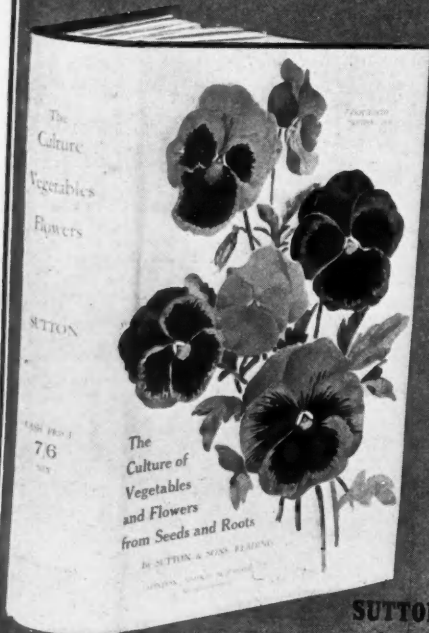 The
Culture
Vegetables
Flowers
SUTTON
7/6
The
Culture of
Vegetables
and Flowers
from Seeds and Roots
By SUTTON & SONS, READING
SUTTON